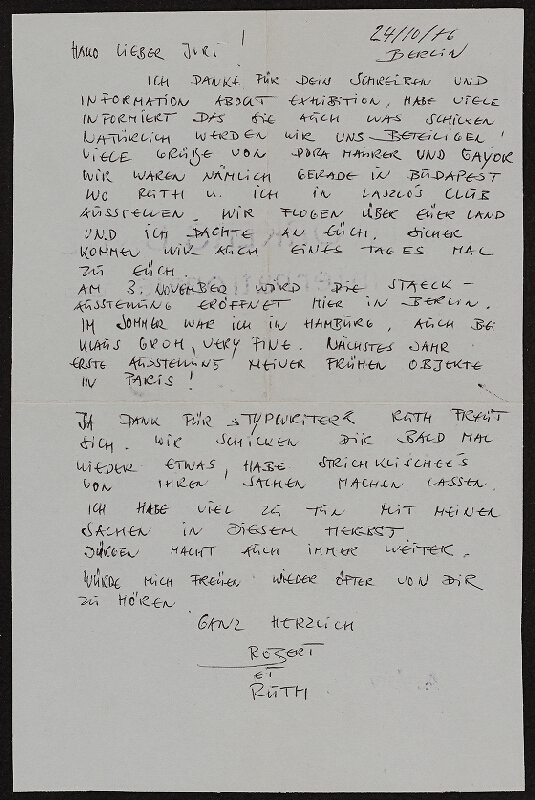 24/10/86
BERLIN
HALLO LIEBER JURI !
ICH DANKE FÜR DEIN SCHREIBEN UND
INFORMATION ABOUT EXHIBITION, HABE VIELE
INFORMIERT DAS SIE AUCH WAS SCHICKEN
NATÜRLICH WERDEN WIR UNS BETEILIGEN!
VIELE GRÜßE VON DORA MAURER UND GAYOR
WIR WAREN NÄMLICH GERADE IN BUDAPEST
WO RUTH U. ICH IN LASZLO'S CLUB
AUSSTELLEN. WIR FLOGEN ÜBER EUER LAND
UND ICH DACHTE AN EUCH. SICHER
KOMMEN WIR AUCH EINES TAGES MAL
ZU EUCH.
AM 3. NOVEMBER WIRD DIE STAECK-
AUSSTELLUNG ERÖFFNET HIER IN BERLIN.
IM SOMMER WAR ICH IN HAMBURG, AUCH BE
KLAUS GROH, VERY FINE. NÄCHSTES JAHR
ERSTE AUSSTELLUNG MEINER FRÜHEN OBJEKTE
IN PARIS!
JA DANK FÜR TYPWRITER RUTH FREUT
SICH. WIR SCHICKEN DIR BALD MAL
WIEDER ETWAS, HABE STRICHKLISCHEE'S
VON IHREN SACHEN MACHEN LASSEN.
ICH HABE VIEL ZU TUN MIT MEINEN
SACHEN IN DIESEM HERBST
JÜRGEN MACHT AUCH IMMER WEITER.
WÜRDE MICH FREUEN WIEDER ÖFTER VON DIR
ZU HÖREN
GANZ HERZLICH
ROBERT
ET
RUTH